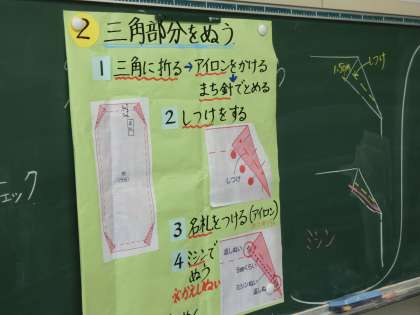 ② 三角部分をぬう
1 三角に折る→アイロンをかける
まち針でとめる
2 しつけをする
しつけ
3 名札をつける(アイロン)
4 ミシンで
ぬう
※かえしぬい
返しぬい
ミシンぬい
返しぬい
しつけ
ミシン
ェック